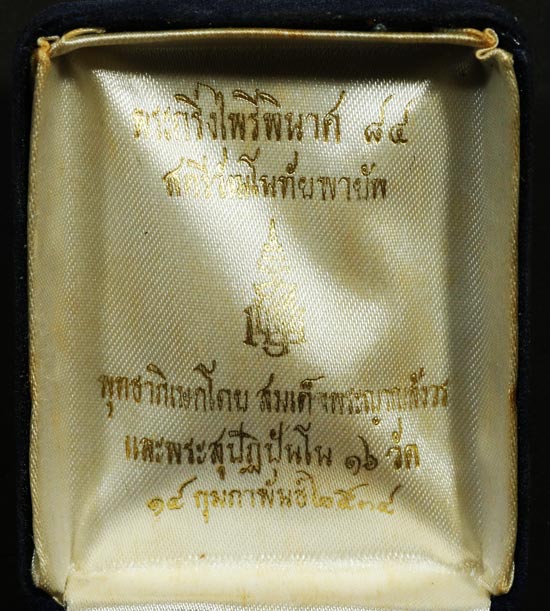 พระกริ่งไพรีพินาศ ๘๔
สตรีวัฒโนทัยพายัพ
ญสส
พุทธาภิเษกโดย สมเด็จพระญาณสังวร
และพระสุปฏิปันโน ๑๖ วัด
๑๔ กุมภาพันธ์ ๒๕๓๔